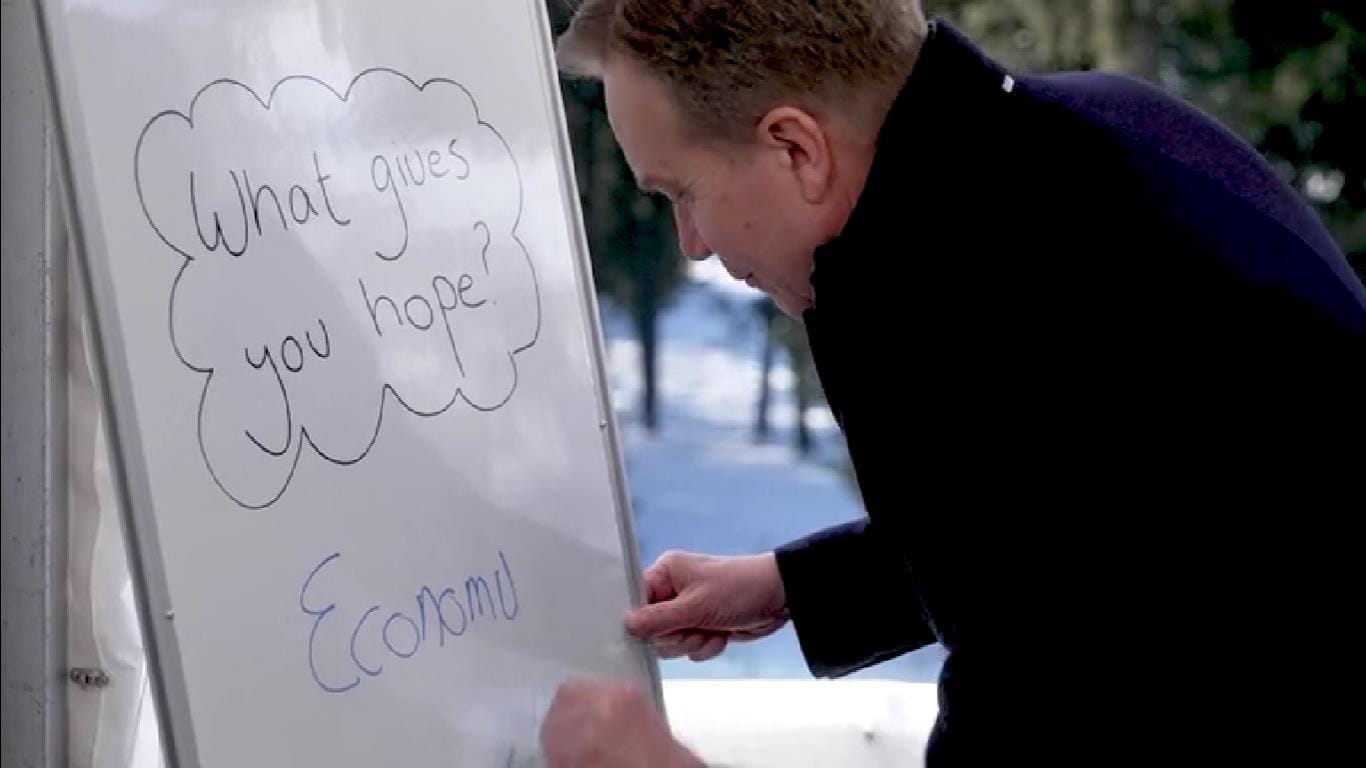 What gives
you hope?
Economy